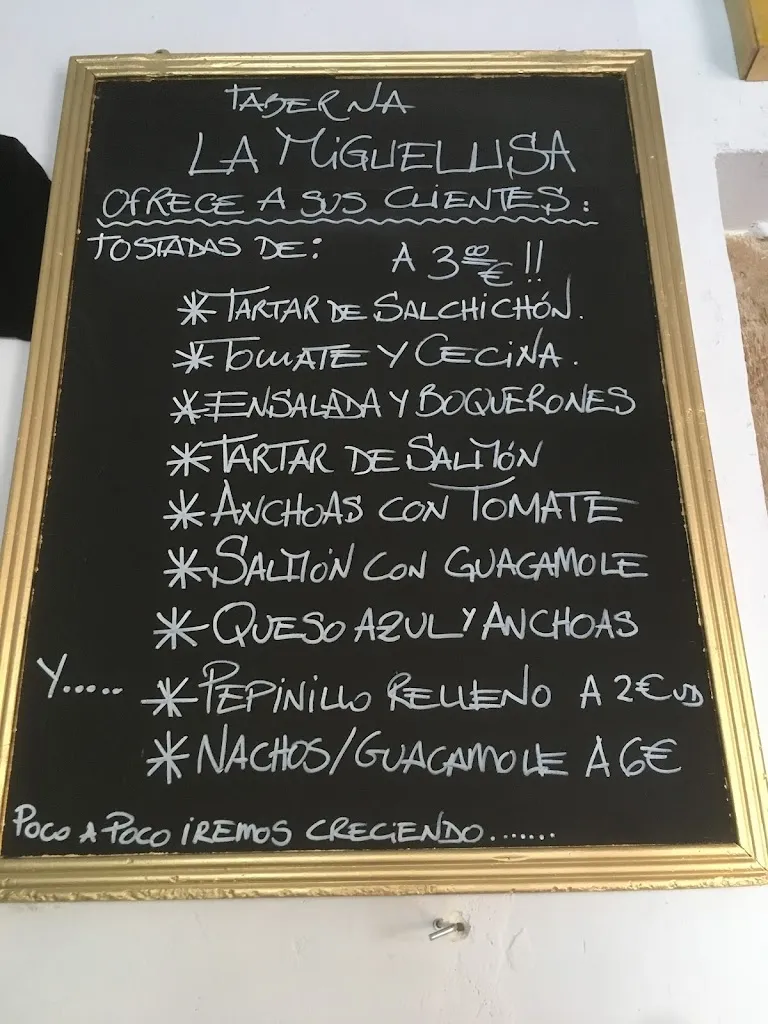 TABERNA
LA MIGUELLISA
OFRECE A SUS CLIENTES:
TOSTADAS DE: A 3,00 € !!
* TARTAR DE SALCHICHÓN.
* TOMATE Y CECINA.
* ENSALADA Y BOQUERONES
* TARTAR DE SALMÓN
* ANCHOAS CON TOMATE
* SALMÓN CON GUACAMOLE
* QUESO AZUL Y ANCHOAS
Y..... * PEPINILLO RELLENO A 2€ UD
* NACHOS/GUACAMOLE A 6€
POCO A POCO IREMOS CRECIENDO.......